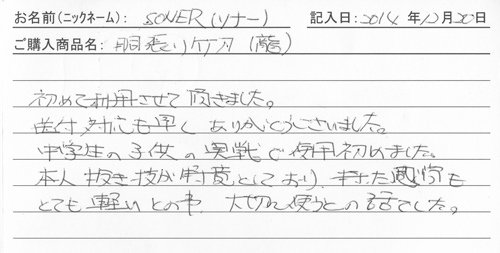 お名前(ニックネーム): SONER(ソナー) 記入日:2014年12月20日
ご購入商品名: 胴張り竹刀(龍)
初めて利用させて頂きました。
送付対応も早くありがとうございました。
中学生の子供の実戦で使用初めました。
本人抜き技が得意としており、持った感覚も
とても軽いとの事、大切に使うとの話でした。